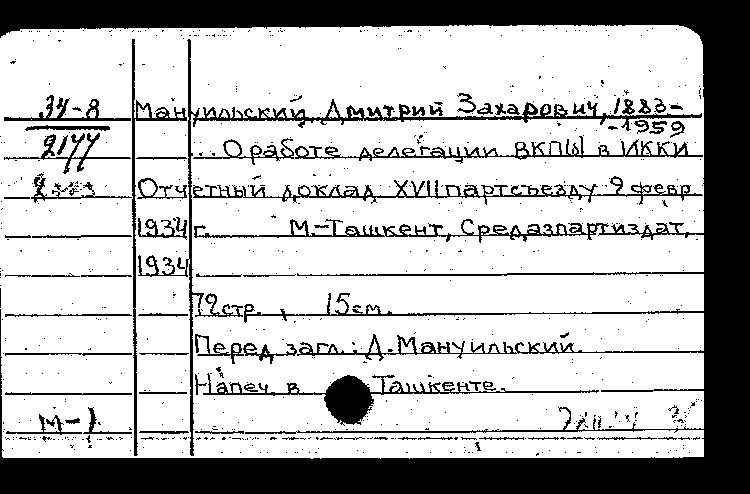 34-8 Мануильский, Дмитрий Захарович, 1883-
-1959
2177 ... О работе делегации ВКП(б) в ИККИ
Отчетный доклад XVII партсъезду 9 февр
1934 г. М.-Ташкент, Средазпартиздат,
1934.
72 стр., 15 см.
Перед загл.: Д. Мануильский.
Напеч. в Ташкенте.
М-1